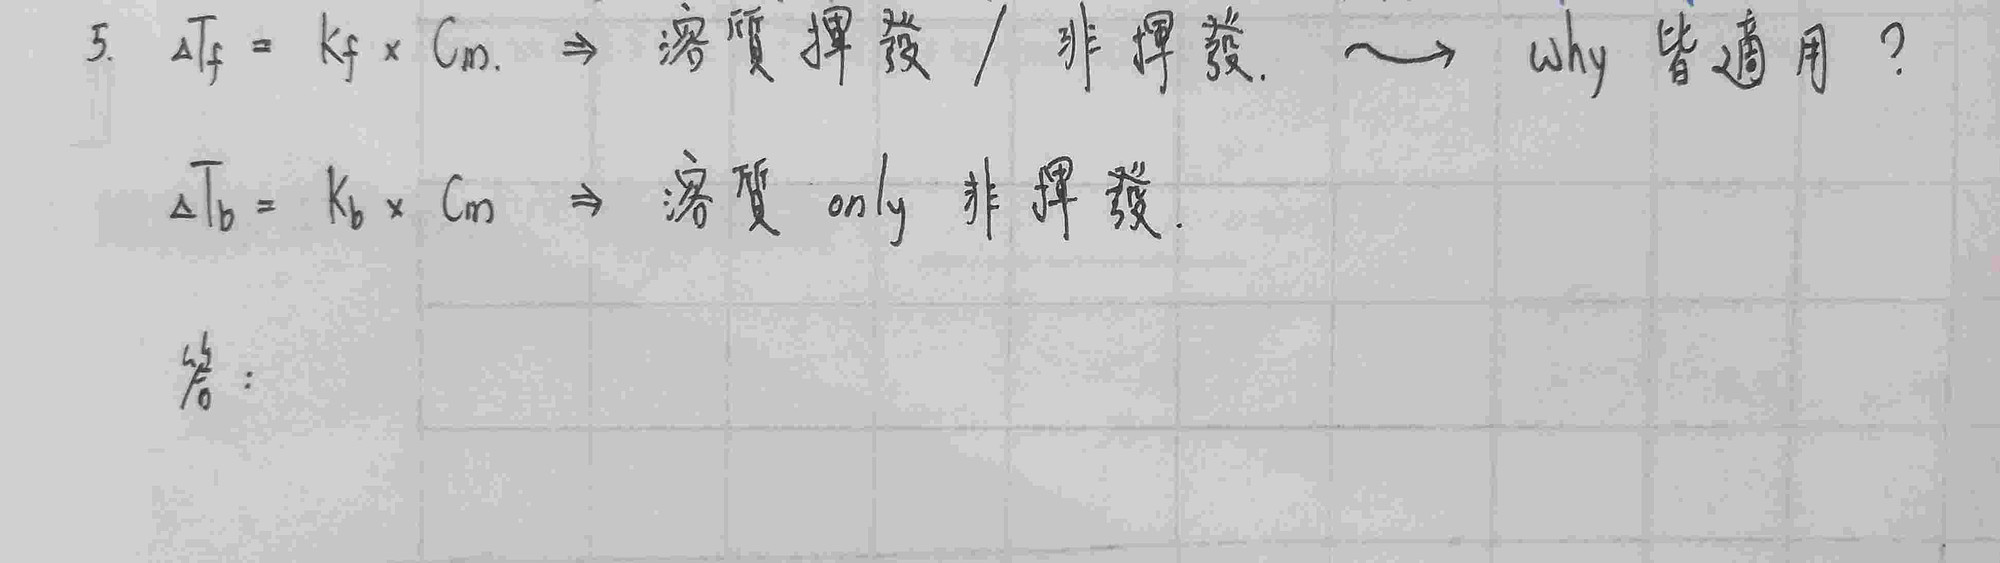 5. △Tf = kf × Cm. ⇒ 溶質揮發 / 非揮發. ⟿ why 皆適用?
△Tb = kb × Cm ⇒ 溶質 only 非揮發.
答: